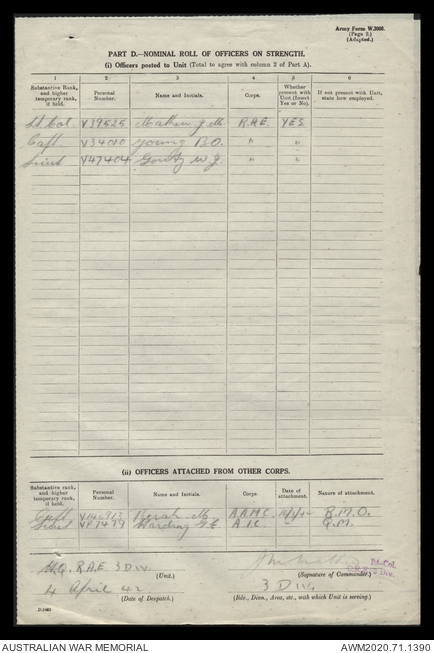 Army Form W.3008.
(Page 2.)
(Adapted.)
PART D.—NOMINAL ROLL OF OFFICERS ON STRENGTH.
(i) Officers posted to Unit (Total to agree with column 2 of Part A).
1 2 3 4 5 6
Substantive Rank, and higher temporary rank, if held. Personal Number. Name and Initials. Corps. Whether present with Unit (Insert Yes or No). If not present with Unit, state how employed.
Lt Col. V39525 J.M. R.A.E. YES
Capt V34010 Young B.O. " "
Lieut V47404 W J. " "
(ii) OFFICERS ATTACHED FROM OTHER CORPS.
Substantive rank, and higher temporary rank, if held. Personal Number. Name and Initials. Corps. Date of attachment. Nature of attachment.
Capt M A.A.M.C. R.M.O.
Lieut Harding Q.M.
H.Q. R.A.E. 3 Div. (Unit.)
(Signature of Commander) Lt-Col.
4 April 42 3 Div.
(Date of Despatch.) (Bde., Divn., Area, etc., with which Unit is serving.)
AUSTRALIAN WAR MEMORIAL AWM2020.71.1390